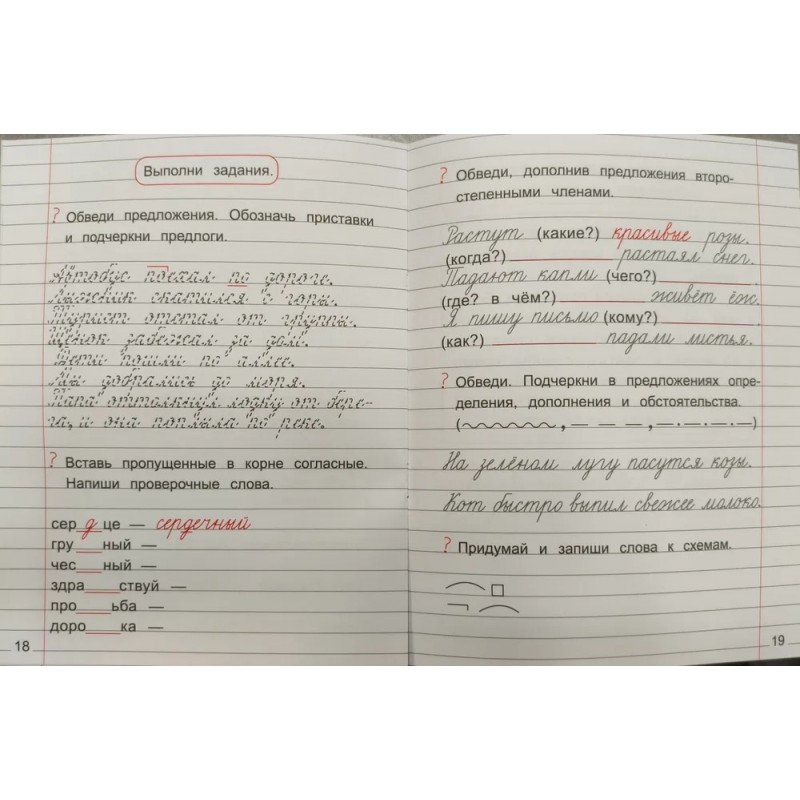 Выполни задания.
? Обведи предложения. Обозначь приставки
и подчеркни предлоги.
Автобус поехал по дороге.
Лыжник скатился с горы.
Турист отстал от группы.
Щенок забежал за дом.
Дети пошли по аллее.
Мы добрались до моря.
Папа оттолкнул лодку от бере-
га, и она поплыла по реке.
? Вставь пропущенные в корне согласные.
Напиши проверочные слова.
сер д це — сердечный
гру___ный —
чес___ный —
здра____ствуй —
про____ьба —
доро____ка —
18
? Обведи, дополнив предложения второ-
степенными членами.
Растут (какие?) красивые розы.
(когда?) ____________ растаял снег.
Падают капли (чего?) ____________.
(где? в чём?) ____________ живёт ёж.
Я пишу письмо (кому?) ____________.
(как?) ____________ падали листья.
? Обведи. Подчеркни в предложениях опре-
деления, дополнения и обстоятельства.
На зелёном лугу пасутся козы.
Кот быстро выпил свежее молоко.
? Придумай и запиши слова к схемам.
19